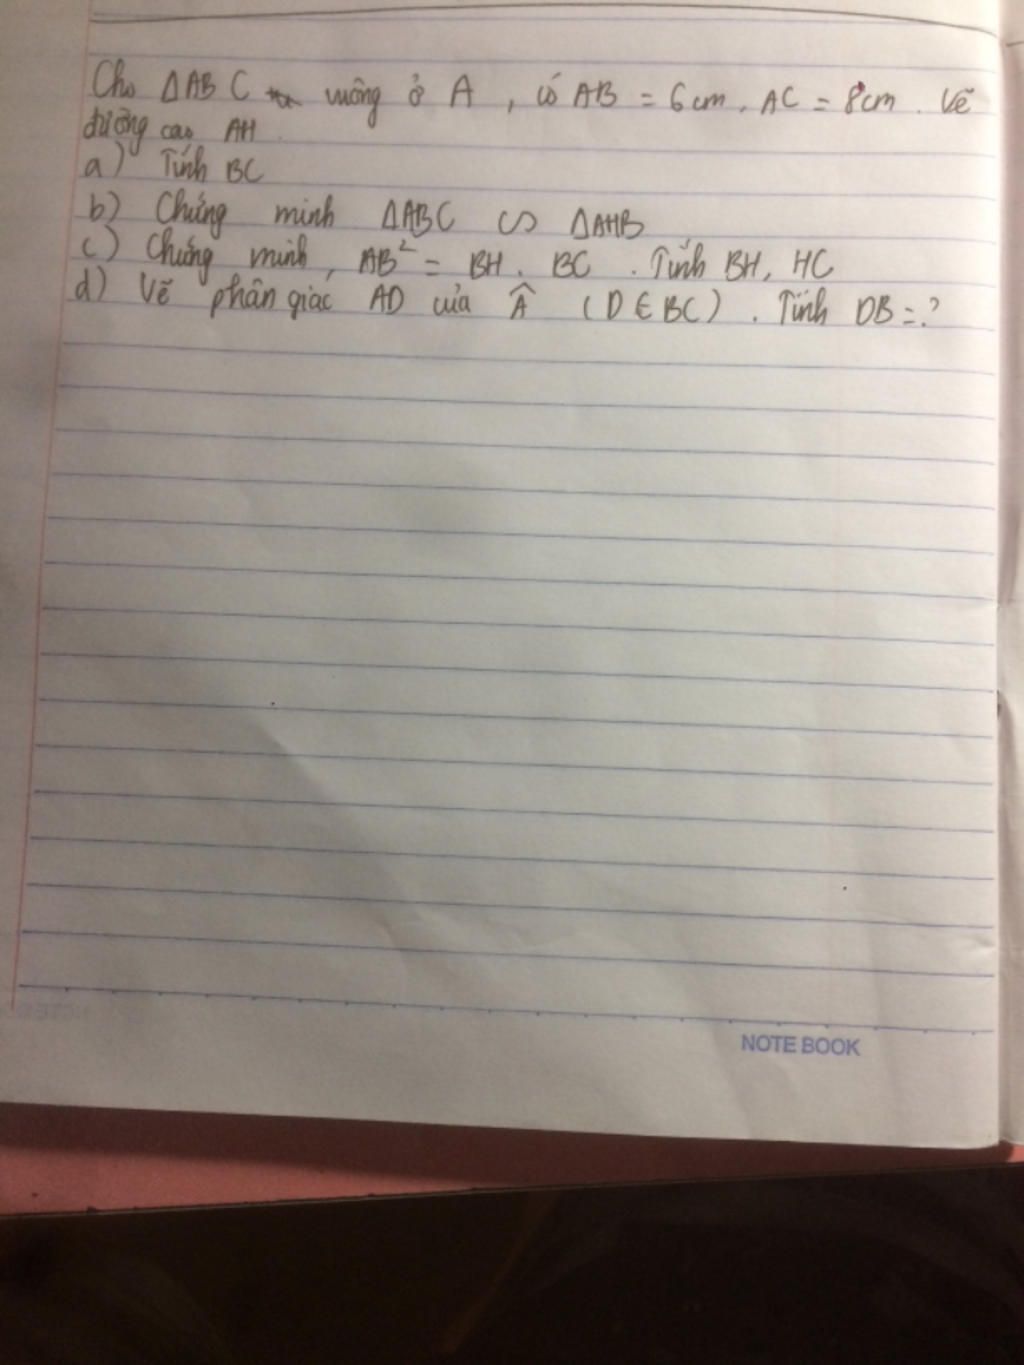 Cho ΔABC vuông ở A, có AB = 6cm, AC = 8cm. Vẽ
đường cao AH.
a) Tính BC
b) Chứng minh ΔABC ∽ ΔAHB
c) Chứng minh, AB² = BH. BC. Tính BH, HC
d) Vẽ phân giác AD của Â (D ∈ BC). Tính DB = ?
NOTE BOOK